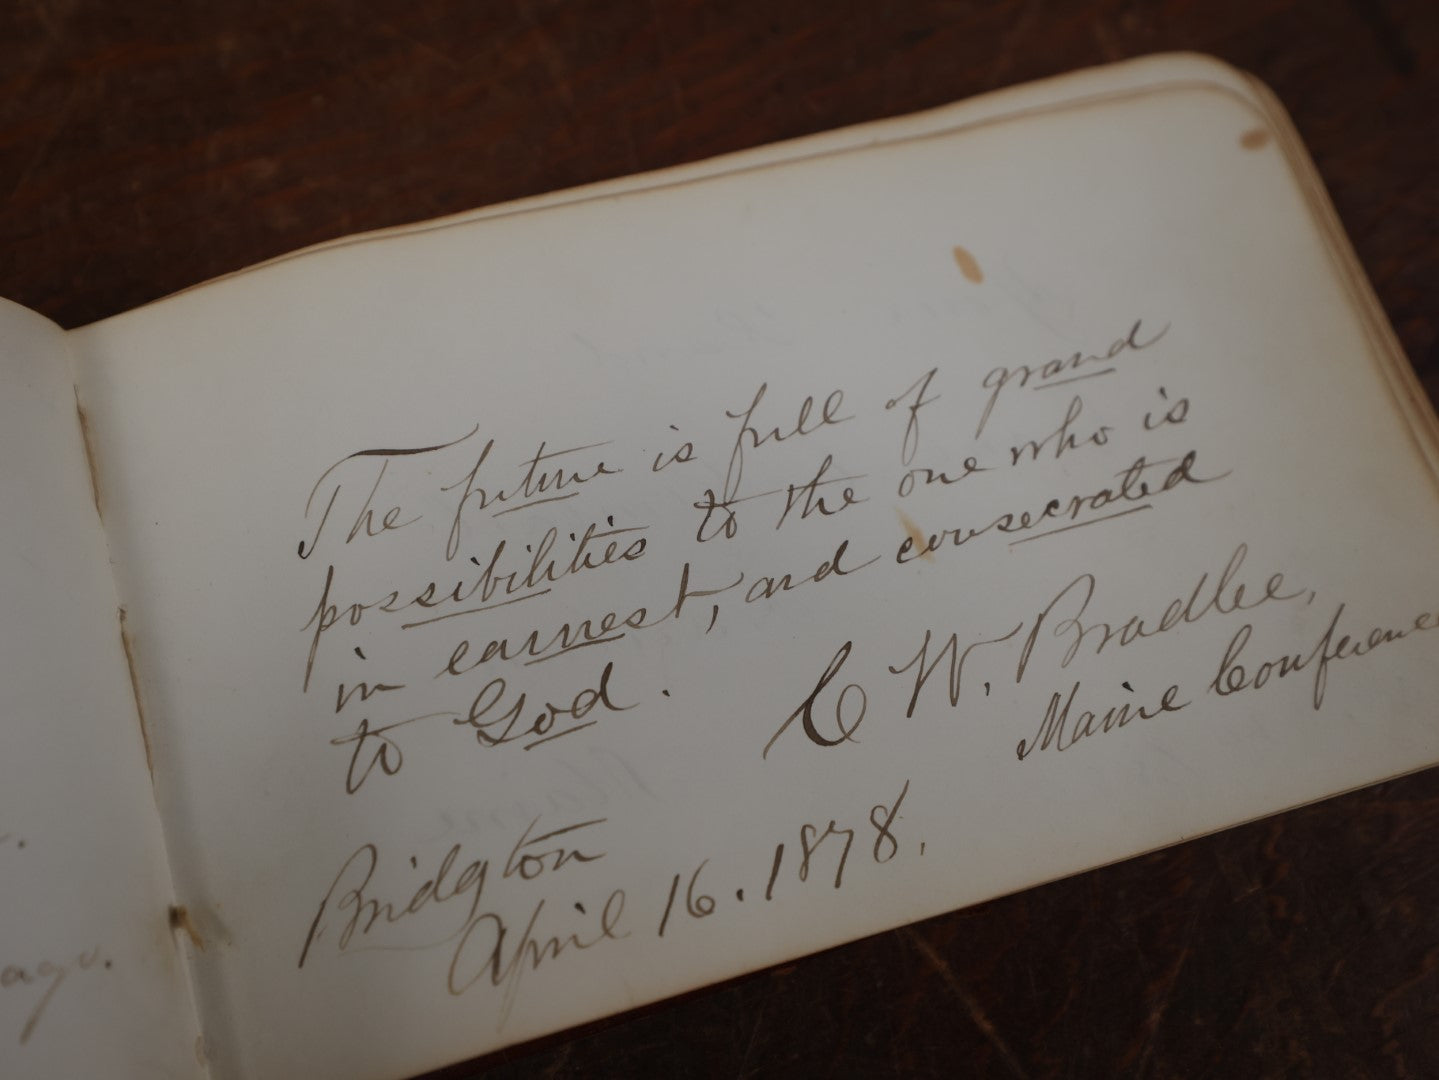 The future is full of grand
possibilities to the one who is
in earnest, and consecrated
to God.
C W. Bradlee,
Maine Conference
Bridgton
April 16. 1878.